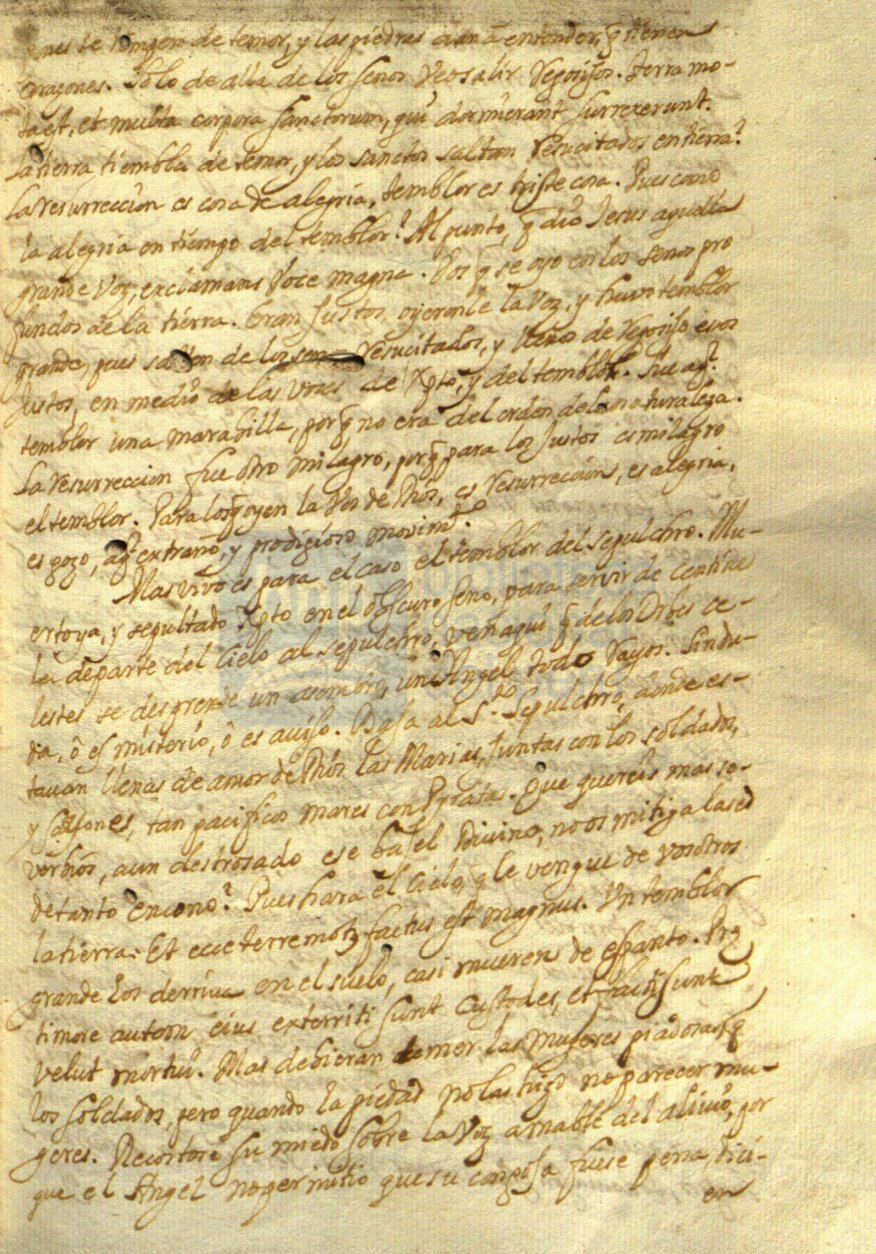 se rompen de temor, y las piedras dan a entender, q̃ tienen
corazones. Solo de alla de los senos veo salir regosijos. terra mo-
ta est, et multa corpora sanctorum, qui dormierant surrexerunt.
La tierra tiembla de temor, y los sanctos saltan resucitados en tierra?
La resurreccion es cosa de alegria, temblor es triste cosa. Pues como
la alegria en tiempo del temblor? Al punto, q̃ dio Jesus aquella
grande Voz, exclamans Voce magna. Vos q̃ se oyo en los senos pro
fundos de la tierra. Eran Justos, oyeronle la Voz, y huvo temblor
grande, pues salen de los senos resucitados, y llenos de regosijo esos
Justos, en medio de las voces de Xpto, y del temblor. Fue aq.l
temblor una marabilla, porq̃ no era del orden de la naturaleza.
La resurreccion fue otro milagro, porq̃ para los Justos es milagro
el temblor. Para los q̃ oyen la Vos de Dios, es resurreccion, es alegria,
es gozo, aq.l extraño, y prodigioso movim.to
Mas vivo es para el caso el temblor del sepulchro. Mu-
erto ya, y sepultado Xpto en el obscuro seno, para servir de centine
la de parte del Cielo al sepulchro, ven aqui q̃ de los Orbes ce-
lestes se desprende un asombro, un Angel todo Rayos. Sin du-
da, ô es misterio, ô es aviso. Baja al S.to Sepulchro, donde es-
tavan llenas de amor de Dios las Marias, Juntas con los soldados,
y sayones, tan pacificos mares con Piratas. Que quereis mas so-
verbios, aun destrosado ese baxel Divino, no os mitiga la sed
de tanto encono? Pues hara el Cielo, q̃ le vengue de vosotros
la tierra: Et ecce terremotus factus est magnus. Un temblor
grande los derriva en el suelo, casi mueren de espanto. Prę
timore autem eius exterriti sunt Custodes, et facti sunt
velut mortui. Mas debieran temer las mugeres piadosas, q̃
los soldados, pero quando la piedad no las hizo no parecer mu-
geres. su miedo sobre la Voz amable del alivio, por
que el Angel no permitio que su congoja fuese pena, dici-
en